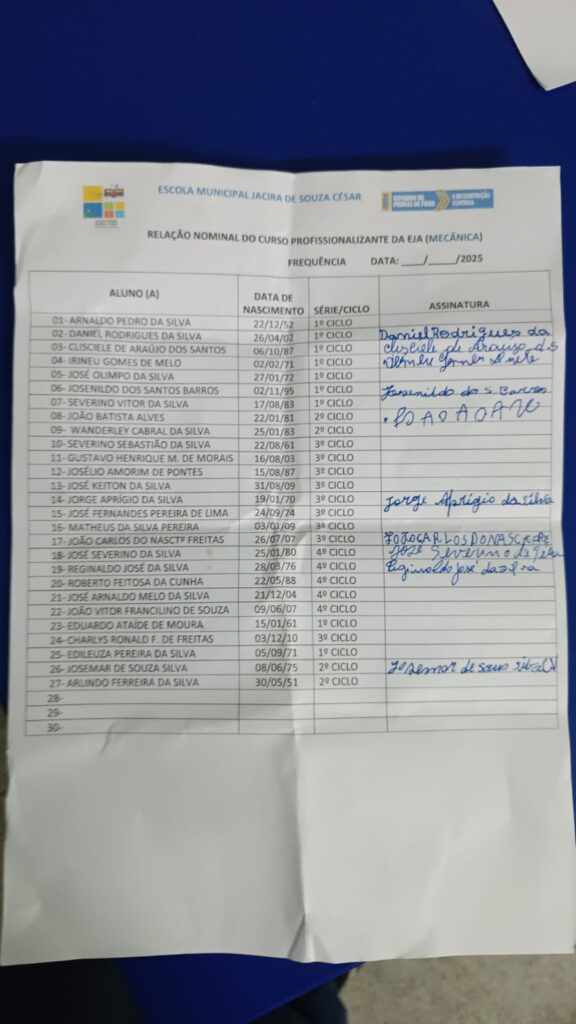 ESCOLA MUNICIPAL JACIRA DE SOUZA CÉSAR
GOVERNO DE PEDRAS DE FOGO A RECONSTRUÇÃO CONTINUA
RELAÇÃO NOMINAL DO CURSO PROFISSIONALIZANTE DA EJA (MECÂNICA)
FREQUÊNCIA DATA: ____/_____/2025
ALUNO (A) DATA DE NASCIMENTO SÉRIE/CICLO ASSINATURA
01- ARNALDO PEDRO DA SILVA 22/12/52 1º CICLO
02- DANIEL RODRIGUES DA SILVA 26/04/02 1º CICLO Daniel Rodrigues da
03- CLISCIELE DE ARAÚJO DOS SANTOS 06/10/87 1º CICLO Clisciele de Araujo dos
04- IRINEU GOMES DE MELO 02/02/71 1º CICLO
05- JOSÉ OLIMPO DA SILVA 27/01/72 1º CICLO
06- JOSENILDO DOS SANTOS BARROS 02/11/95 1º CICLO Josenildo dos S. Barros
07- SEVERINO VITOR DA SILVA 17/08/83 1º CICLO
08- JOÃO BATISTA ALVES 22/01/81 2º CICLO
09- WANDERLEY CABRAL DA SILVA 25/01/83 2º CICLO
10- SEVERINO SEBASTIÃO DA SILVA 22/08/61 3º CICLO
11- GUSTAVO HENRIQUE M. DE MORAIS 16/08/03 3º CICLO
12- JOSÉLIO AMORIM DE PONTES 15/08/87 3º CICLO
13- JOSÉ KEITON DA SILVA 31/08/09 3º CICLO
14- JORGE APRÍGIO DA SILVA 19/01/70 3º CICLO Jorge Aprígio da silva
15- JOSÉ FERNANDES PEREIRA DE LIMA 24/09/74 3º CICLO
16- MATHEUS DA SILVA PEREIRA 03/01/09 3º CICLO
17- JOÃO CARLOS DO NASCTº FREITAS 26/07/07 3º CICLO
18- JOSÉ SEVERINO DA SILVA 25/01/80 4º CICLO José Severino da
19- REGINALDO JOSÉ DA SILVA 28/03/76 4º CICLO Reginaldo José da silva
20- ROBERTO FEITOSA DA CUNHA 22/05/88 4º CICLO
21- JOSÉ ARNALDO MELO DA SILVA 21/12/04 4º CICLO
22- JOÃO VITOR FRANCILINO DE SOUZA 09/06/07 4º CICLO
23- EDUARDO ATAÍDE DE MOURA 15/01/61 1º CICLO
24- CHARLYS RONALD F. DE FREITAS 03/12/10 3º CICLO
25- EDILEUZA PEREIRA DA SILVA 05/09/71 1º CICLO
26- JOSEMAR DE SOUZA SILVA 08/06/75 2º CICLO Josemar de
27- ARLINDO FERREIRA DA SILVA 30/05/51 2º CICLO
28-
29-
30-